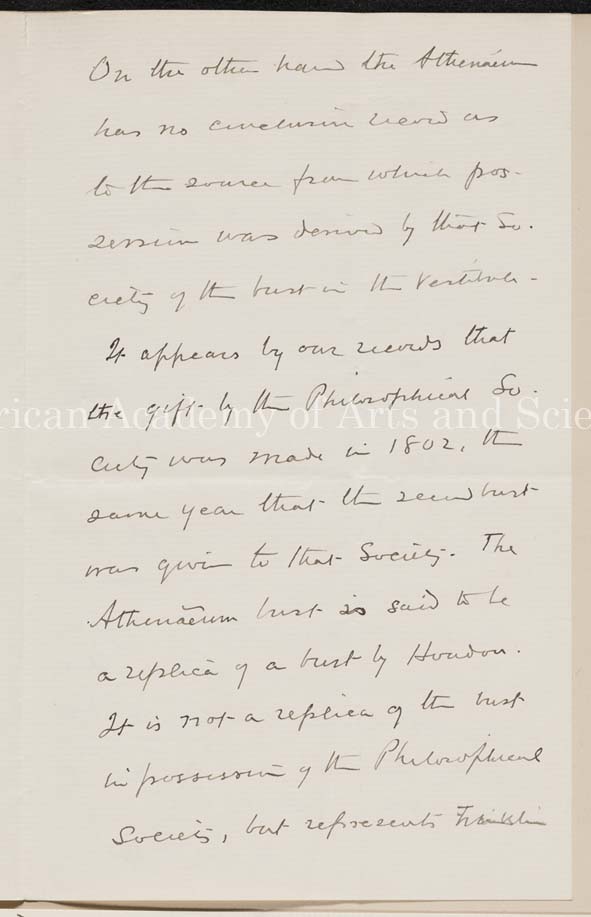 On the other hand the Athenæum
has no conclusive record as
to the source from which pos-
session was derived by that So-
ciety of the bust in the vestibule -
It appears by our records that
the gift by the Philosophical So-
rican Academy of Arts and Scie
ciety was made in 1802, the
same year that the second bust
was given to that Society. The
Athenæum bust is said to be
a replica of a bust by Houdon.
It is not a replica of the bust
in possession of the Philosophical
Society, but represents Franklin